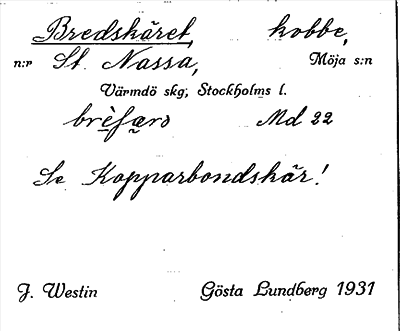 Bredskäret, kobbe,
n:r St. Nassa, Möja s:n
Värmdö skg, Stockholms l.
Md 22
Se Kopparbondskär!
J. Westin Gösta Lundberg 1931